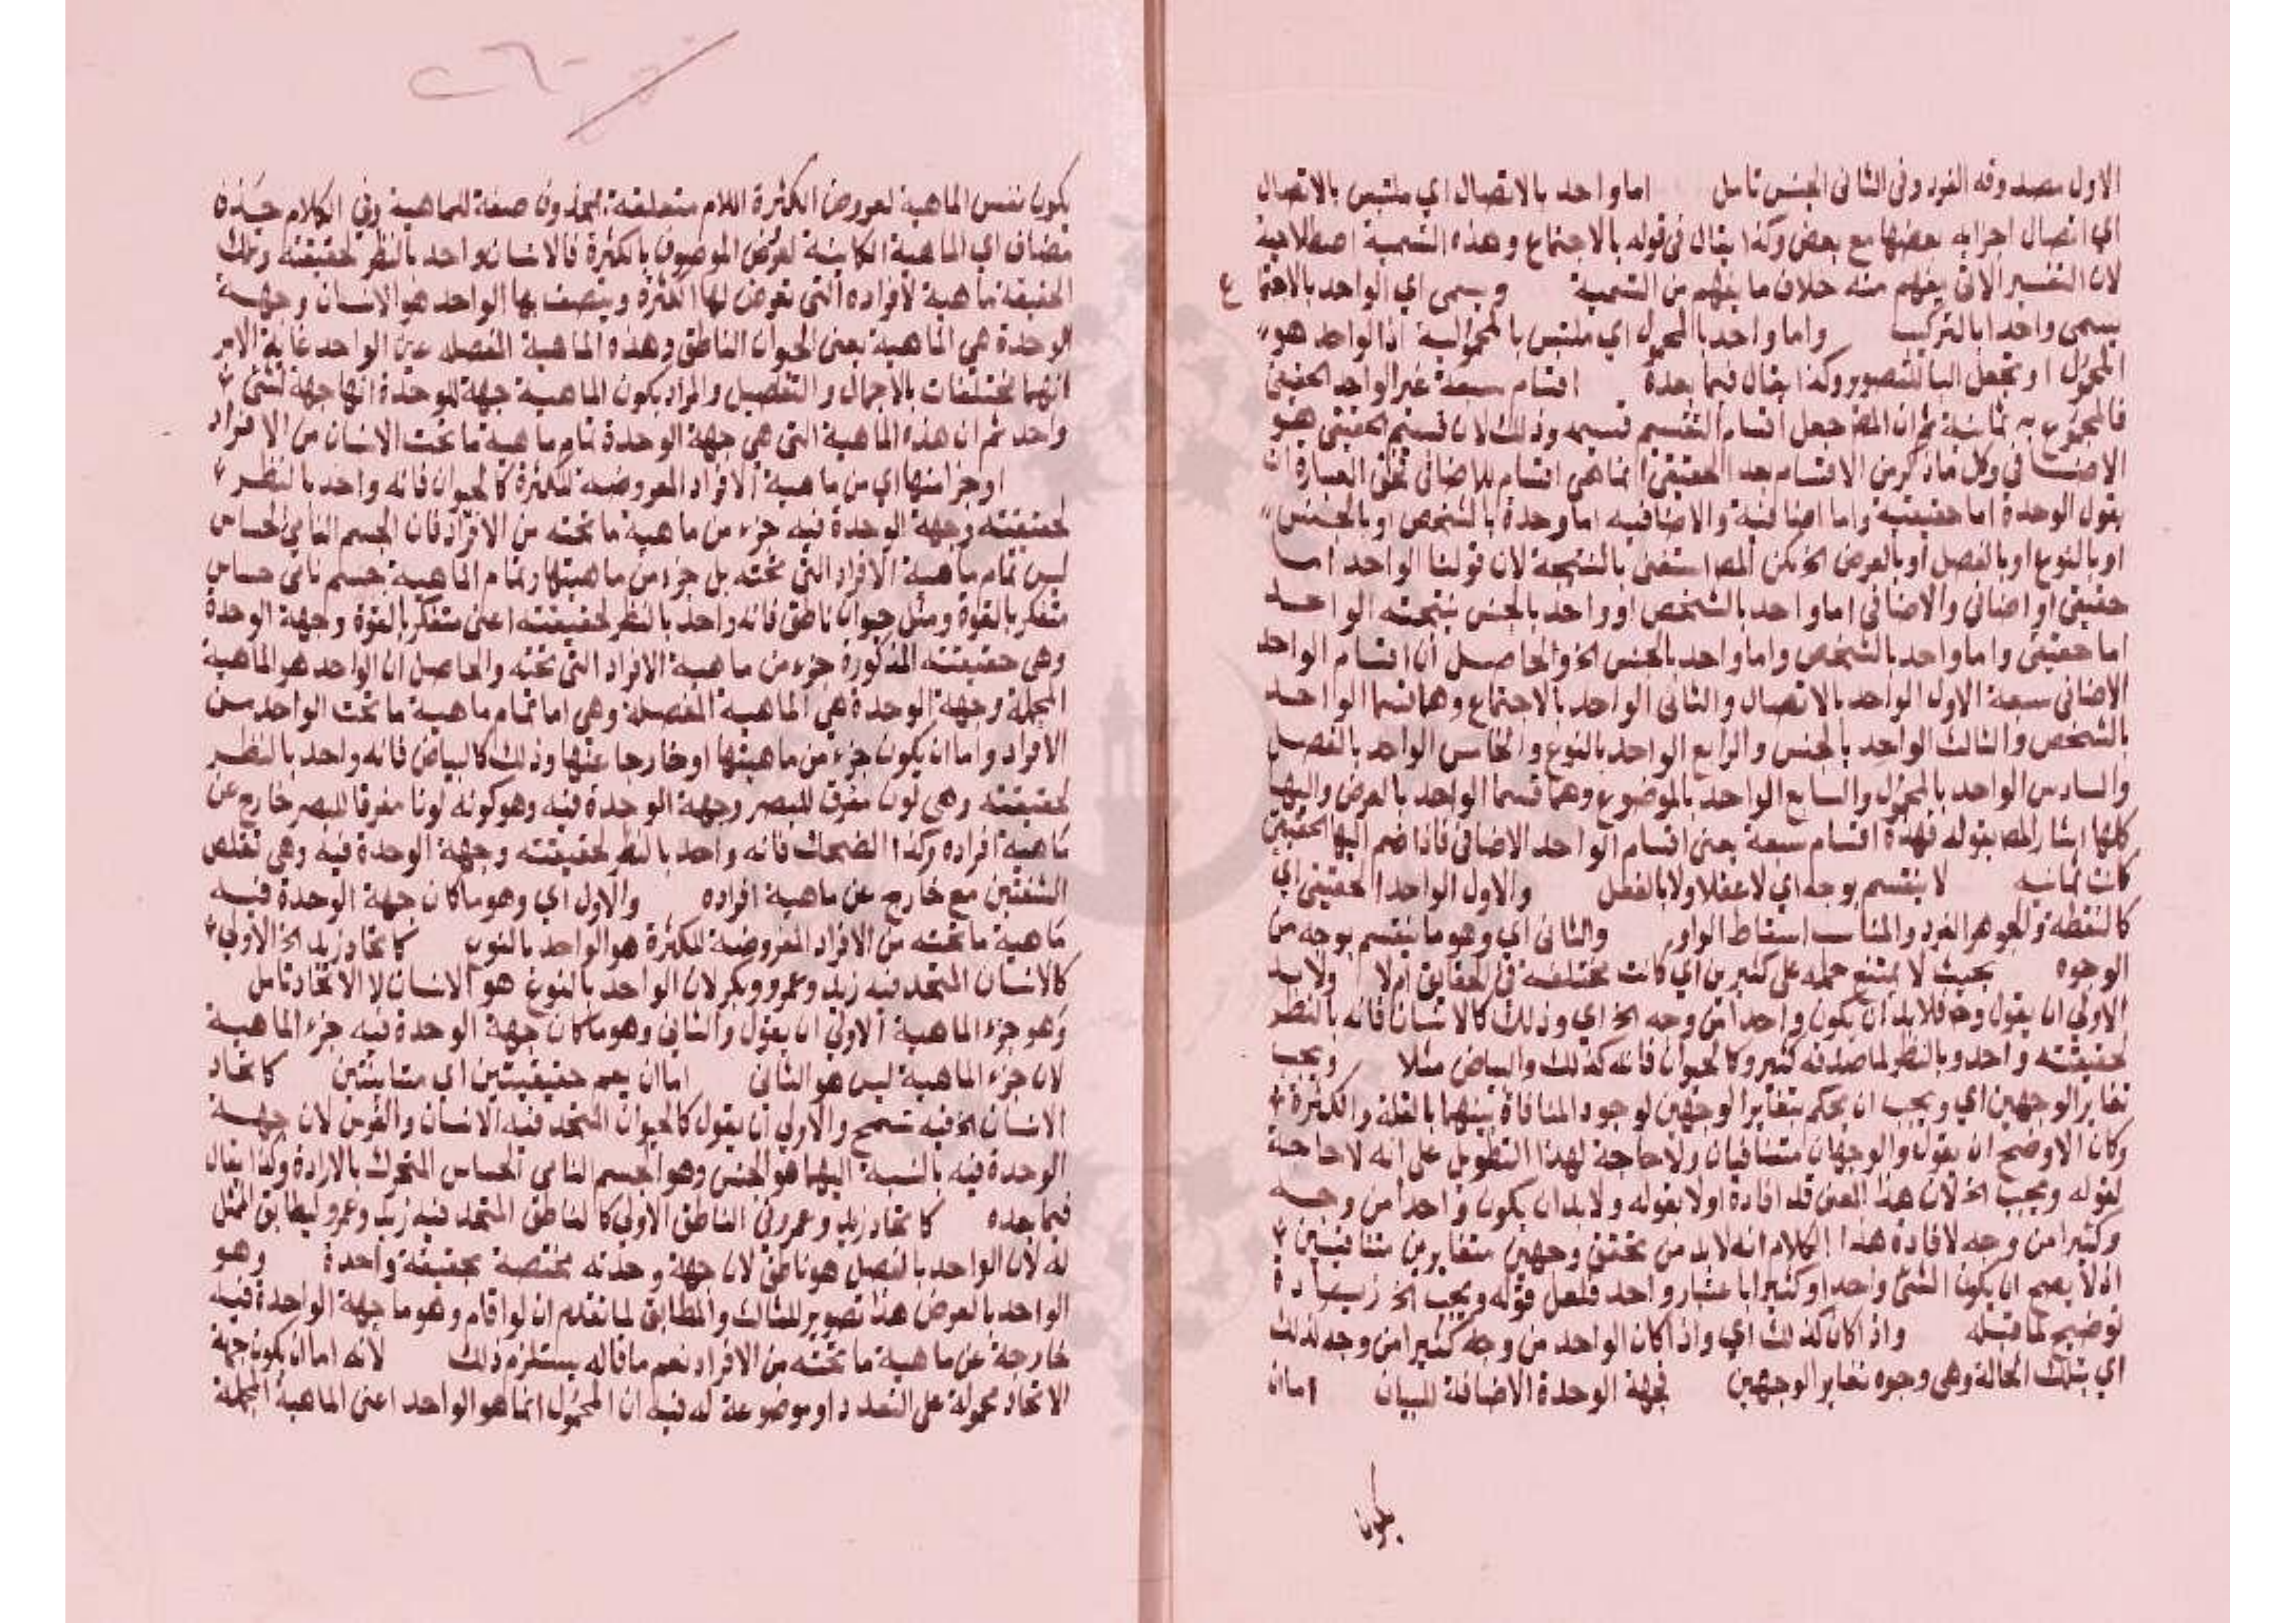 الاول مصدوقه الفرد وفى الثانى الجنس تامل اما واحد بالاتصال اي ملتبس بالاتصال
اي اتصال اجزايه بعضها مع بعض وكذا يقال فى قوله بالاجتماع وهذه التسمية اصطلاحية
لان التفسير الاتى يفهم منه خلاف ما يفهم من التسمية ويسمى اي الواحد بالاجتماع
يسمى واحدا بالتركيب واما واحد بالمحمول اي ملتبس بالمحمولية اذ الواحد هو
المحمول او تجعل البا للتصوير وكذا يقال فيما بعده اقسام سبعة غير الواحد الحقيقى
فالمجموع به ثمانية ثم ان المص جعل اقسام القسم قسيمه وذلك لان قسيم الحقيقى هو
الاضافى وكل ما ذكر من الاقسام بعد الحقيقى انما هى اقسام للاضافى فحق العبارة ان
يقول الوحدة اما حقيقية واما اضافية والاضافيه اما وحدة بالشخص او بالجنس
او بالنوع او بالفصل او بالعرض الخ لكن المص استغنى بالنتيجة لان قولنا الواحد اما
حقيقى او اضافى والاضافى اما واحد بالشخص او واحد بالجنس ينتجته الواحد
اما حقيقى واما واحد بالشخص واما واحد بالجنس الخ والحاصل ان اقسام الواحد
الاضافى سبعة الاول الواحد بالاتصال والثانى الواحد بالاجتماع وهما قسما الواحد
بالشخص والثالث الواحد بالجنس والرابع الواحد بالنوع والخامس الواحد بالفصل
والسادس الواحد بالمحمول والسابع الواحد بالموضوع وهما قسما الواحد بالعرض واليها
كلها اشار المص بقوله فهذه اقسام سبعة يعنى اقسام الواحد الاضافى فاذا ضم اليها الحقيقى
كانت ثمانيه لا ينقسم بوجه اي لا عقلا ولا بالفعل والاول الواحد الحقيقى اي
كالنقطه والجوهر الفرد والمناسب اسقاط الواو والثانى اي وهو ما ينقسم بوجه من
الوجوه بحيث لا يمتنع حمله على كثيرين اي كانت مختلفه فى الحقايق ام لا ولا بد
الاولى ان يقول وح فلا بد ان يكون واحدا من وجه الخ اي وذلك كالانسان فانه بالنظر
لحقيقته واحد وبالنظر لما صدقه كثير وكالحيوان فانه كذلك والبياض مثلا ويجب
تغاير الوجهين اي ويجب ان يحكم بتغاير الوجهين لوجود المنافاة بينهما بالقلة والكثرة
وكان الاوضح ان يقول والوجهان متنافيان ولا حاجة لهذا التطويل على انه لا حاجة
لقوله ويجب الخ لان هذا المعنى قد افاده اولا بقوله ولا بد ان يكون واحدا من وجه
وكثيرا من وجه لافادة هذا الكلام انه لا بد من تحقق وجهين متغايرين متنافيين
اذ لا يصح ان يكون الشئ واحدا وكثيرا باعتبار واحد فلعل قوله ويجب الخ زيادة
توضيح لما قبله واذا كان كذلك اي واذا كان الواحد من وجه كثيرا من وجه لذلك
اي بتلك الحالة وهى وجوه تغاير الوجهين فجهة الوحدة الاضافة للبيان اما ان
يكون
يكون نفس الماهية لعروض الكثرة اللام متعلقة بمحذوف صفة للماهية وفى الكلام حينئذ
مضاف اي الماهية الكاينة لعرض الموصوف بالكثرة فالانسان واحد بالنظر لحقيقته وتلك
الحقيقة ماهية لأفراده التى تعرض لها الكثرة ويتصف بها الواحد هو الانسان وجهة
الوحدة هى الماهية بعنى الحيوان الناطق وهذه الماهية المفصله عين الواحد غاية الامر
انهما مختلفان بالاجمال والتفصيل والمراد بكون الماهية جهة للوحدة انها جهة لشئ
واحد ثم ان هذه الماهية التى هى جهة الوحدة تمام ماهية ما تحت الانسان من الافراد
او جزء منها اي من ماهية الافراد المعروضه للكثرة كالحيوان فانه واحد بالنظر
لحقيقته وجهة الوحدة فيه جزء من ماهية ما تحته من الافراد فان الجسم النامى الحساس
ليس تمام ماهية الافراد التى تحته بل جزء من ماهيتها وتمام الماهية جسم نامى حساس
متفكر بالقوة ومثل حيوان ناطق فانه واحد بالنظر لحقيقته اعنى متفكر بالقوة وجهة الوحدة
وهى حقيقته المذكورة جزء من ماهية الافراد التى تحته والحاصل ان الواحد هو الماهية
المجملة وجهة الوحدة هى الماهية المفصلة وهى اما تمام ماهية ما تحت الواحد من
الافراد واما ان يكون جزء من ماهيتها او خارجا عنها وذلك كالبياض فانه واحد بالنظر
لحقيقته وهى لون مفرق للبصر وجهة الوحدة فيه وهو كونه لونا مفرقا للبصر خارج عن
ماهية افراده وكذا الضحك فانه واحد بالنظر لحقيقته وجهة الوحدة فيه وهى تقلص
الشفتين مع خارج عن ماهية افراده والاول اي وهو ما كان جهة الوحدة فيه
ماهية ما تحته من الافراد المعروضة للكثرة هو الواحد بالنوع كاتحاد زيد الخ الاولى
كالانسان المتحد فيه زيد وعمرو وبكر لان الواحد بالنوع هو الانسان لا الاتحاد تامل
وهو جزء الماهية الاولى ان يقول والثانى وهو ما كان جهة الوحدة فيه جزء الماهية
لان جزء الماهية ليس هو الثانى اما ان يعم حقيقيتين اي متباينتين كاتحاد
الانسان الخ فيه تسمح والاولى ان يقول كالحيوان المتحد فيه الانسان والفرس لان جهة
الوحدة فيه بالنسبة اليهما هو الجنس وهو الجسم النامى الحساس المتحرك بالارادة وكذا يقال
فيما بعده كاتحاد زيد وعمرو فى الناطق الاولى كالناطق المتحد فيه زيد وعمرو ليطابق الممثل
له لان الواحد بالفصل هو ناطق لان جهة وحدته مختصة بحقيقة واحدة وهو
الواحد بالعرض هذا تصوير للثالث والمطابق لما تقدم ان لو اقام وهو ما جهة الواحدة فيه
خارجة عن ماهية ما تحته من الافراد نعم ما قاله يستلزم ذلك لانه اما ان يكون جهة
الاتحاد محمولة على التعدد او موضوعة له فيه ان المحمول انما هو الواحد اعنى الماهية المجملة